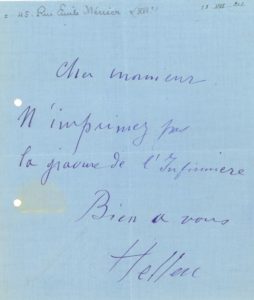 45. Rue Émile Ménier
Cher monsieur
N'imprimez pas
la gravure de l'Infirmière
Bien a vous
Helleu